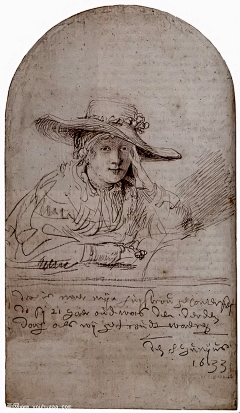 dit is naer mijn huijsvrou geconterfeijt
do sij 21 jaer oud was den derden
dach als wij getroudt waeren
den 8 Junijus
1633